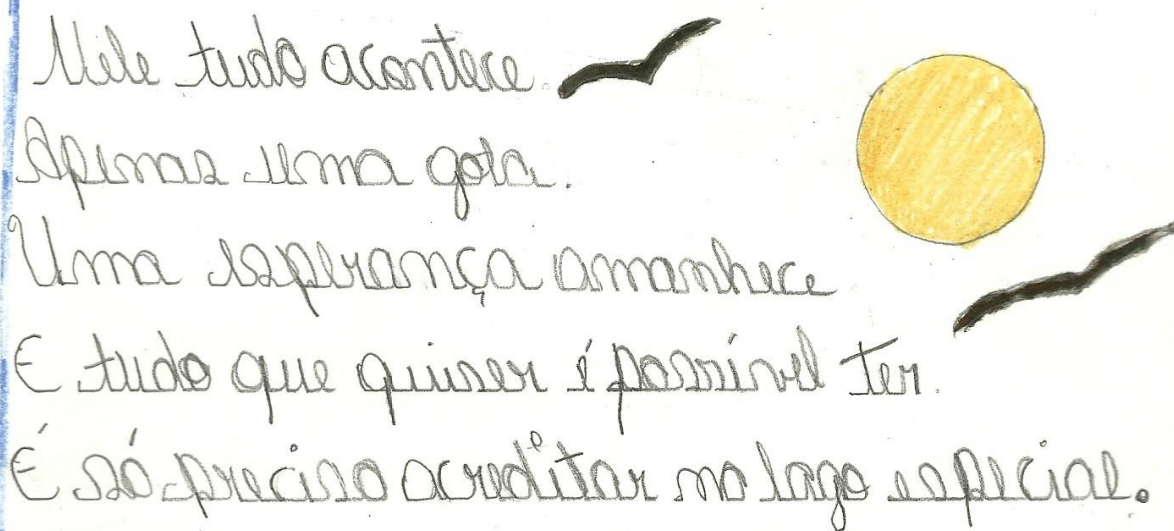 Nele tudo acontece.
Apenas uma gota.
Uma esperança amanhece
E tudo que quiser é possível ter.
É só preciso acreditar no lago especial.